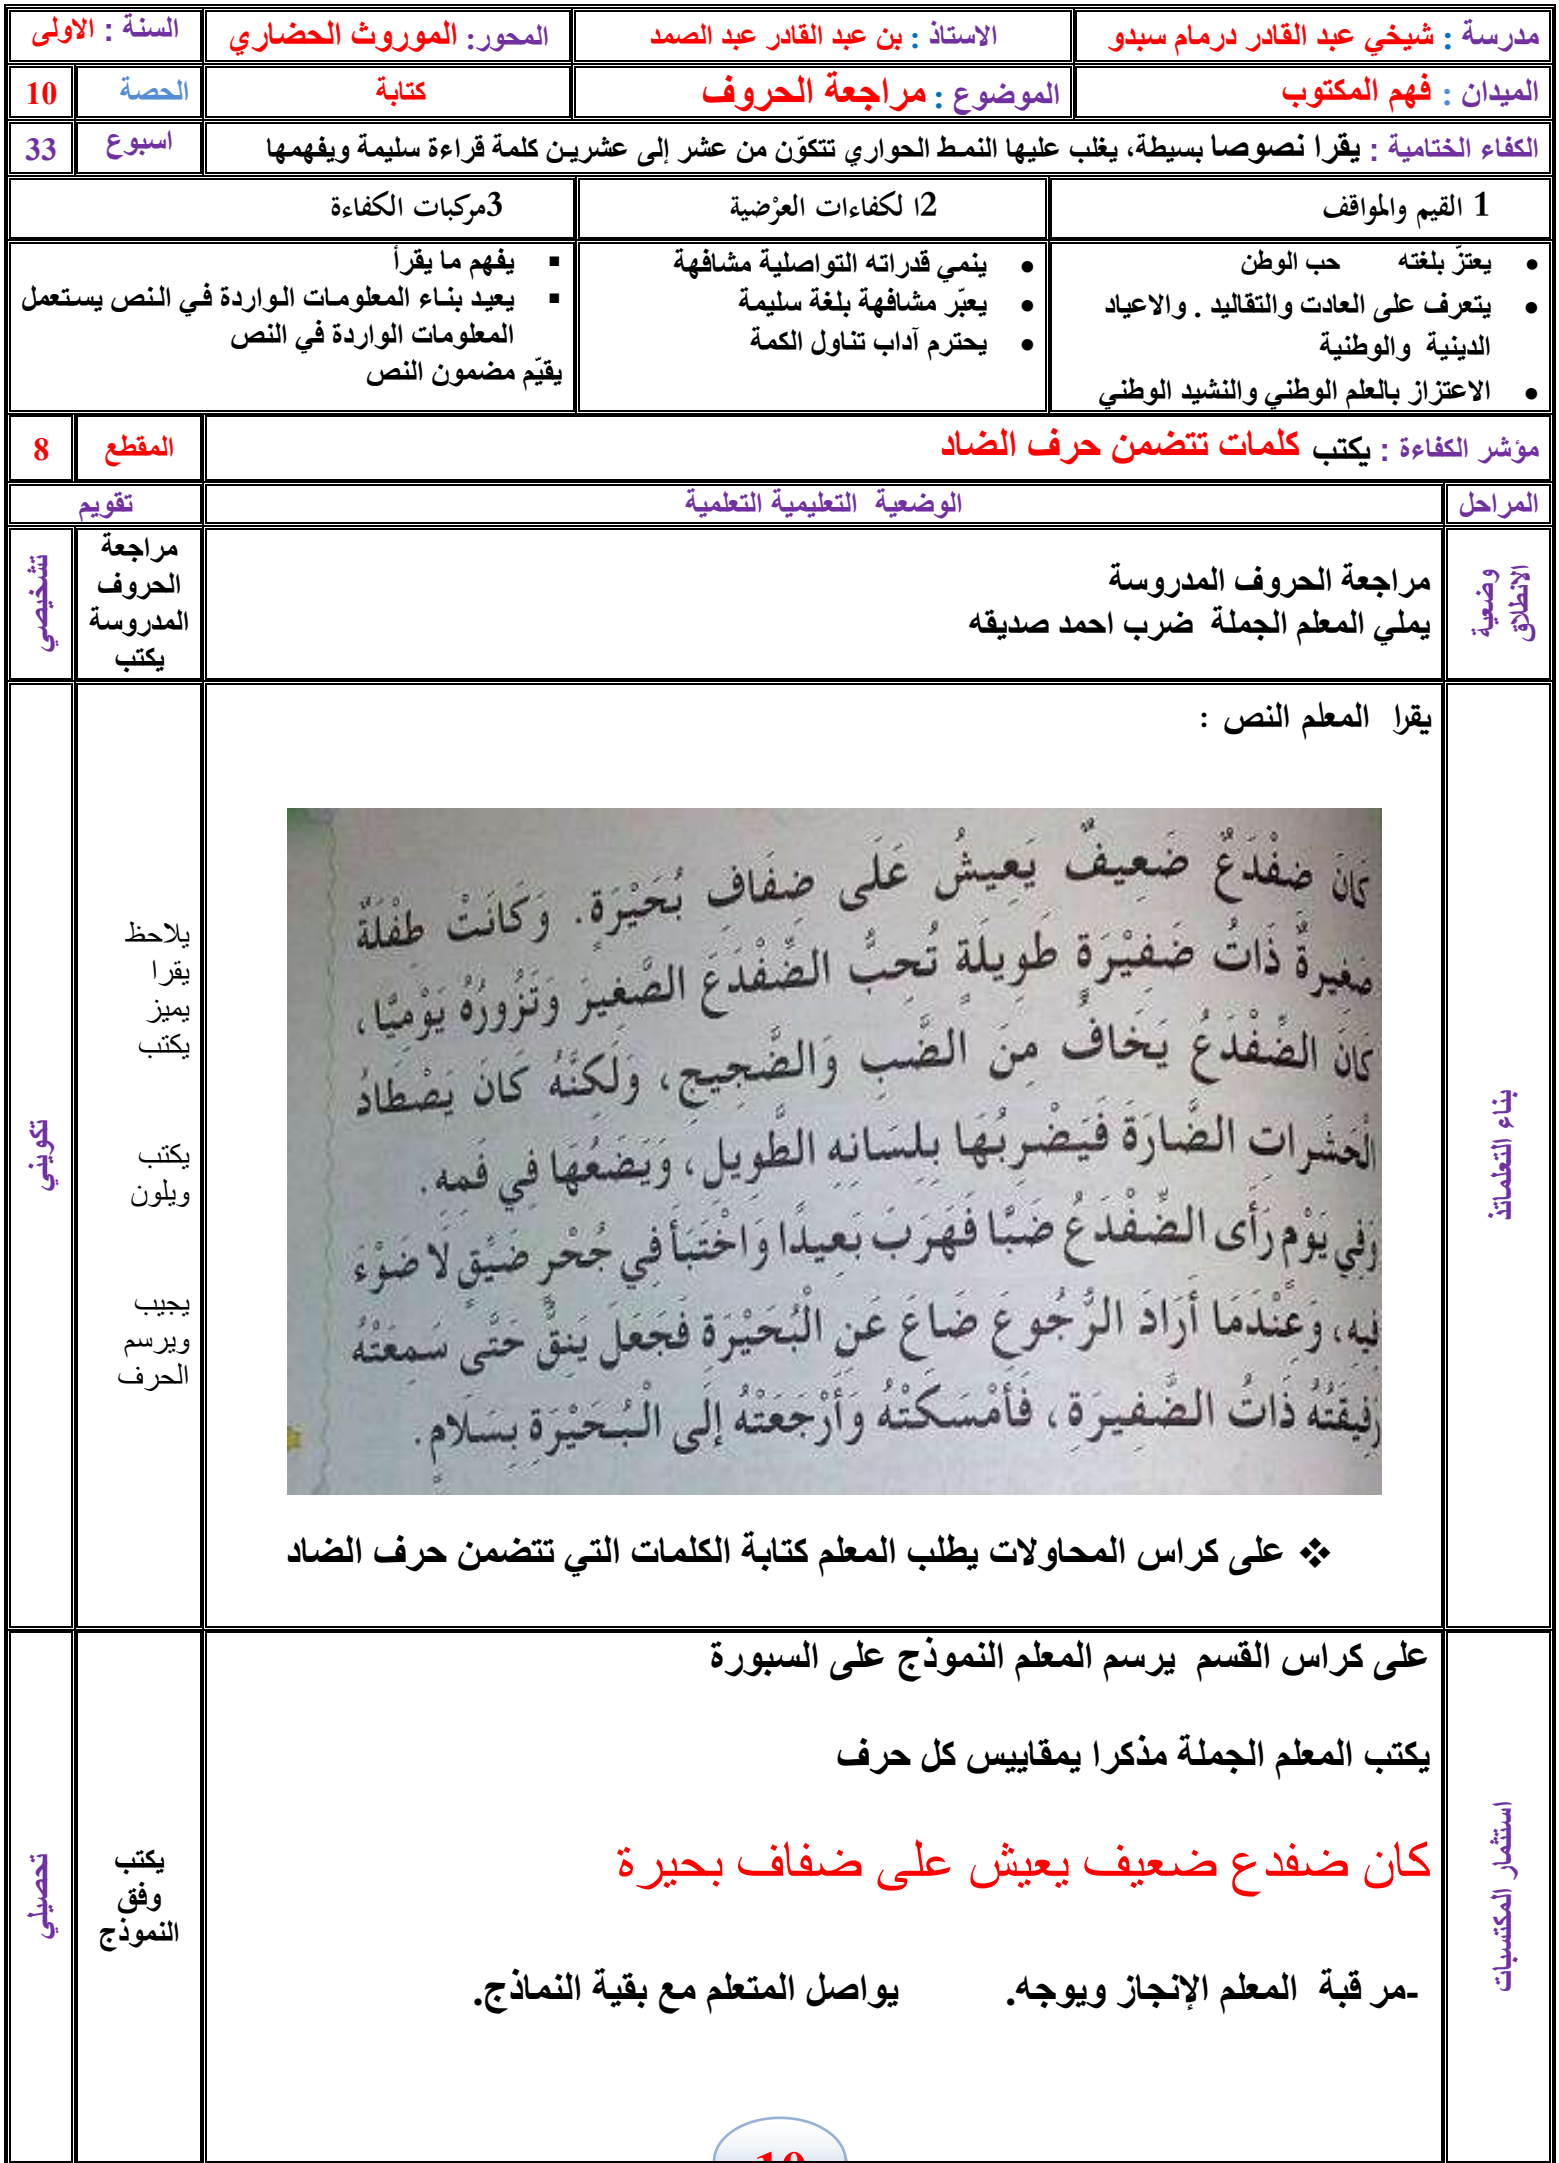 مدرسة : شيخي عبد القادر درمام سبدو
الاستاذ : بن عبد القادر عبد الصمد
المحور: الموروث الحضاري
السنة : الاولى
الميدان : فهم المكتوب
الموضوع : مراجعة الحروف
كتابة
الحصة
10
الكفاء الختامية : يقرا نصوصا بسيطة، يغلب عليها النمط الحواري تتكوّن من عشر إلى عشرين كلمة قراءة سليمة ويفهمها
اسبوع
33
1 القيم والمواقف
2ا لكفاءات العرْضية
3مركبات الكفاءة
• يعتزّ بلغته حب الوطن
• يتعرف على العادت والتقاليد . والاعياد
الدينية والوطنية
• الاعتزاز بالعلم الوطني والنشيد الوطني
• ينمي قدراته التواصلية مشافهة
• يعبّر مشافهة بلغة سليمة
• يحترم آداب تناول الكمة
▪ يفهم ما يقرأ
▪ يعيد بناء المعلومات الواردة في النص يستعمل
المعلومات الواردة في النص
يقيّم مضمون النص
مؤشر الكفاءة : يكتب كلمات تتضمن حرف الضاد
المقطع
8
المراحل
الوضعية التعليمية التعلمية
تقويم
وضعية
الانطلاق
مراجعة الحروف المدروسة
يملي المعلم الجملة ضرب احمد صديقه
مراجعة
الحروف
المدروسة
يكتب
تشخيصي
بناء التعلماتذ
يقرا المعلم النص :
كَانَ ضِفْدَعٌ ضَعِيفٌ يَعِيشُ عَلَى ضِفَافِ بُحَيْرَةٍ. وَكَانَتْ طِفْلَةٌ
صَغِيرةٌ ذَاتُ ضَفِيْرَةٍ طَوِيلَةٍ تُحِبُّ الضِّفْدَعَ الصَّغِيرَ وَتَزُورُهُ يَوْمِيًّا،
كَانَ الضِّفْدَعُ يَخَافُ مِنَ الضَّبِ وَالضَّجِيجِ، وَلَكِنَّهُ كَانَ يَصْطَادُ
الْحَشَرِاتِ الضَّارَةَ فَيَضْرِبُهَا بِلِسَانِهِ الطَّوِيلِ، وَيَضَعُهَا فِي فَمِهِ.
وَفِي يَوْمٍ رَأَى الضِّفْدَعُ ضَبًّا فَهَرَبَ بَعِيدًا وَاخْتَبَأَ فِي جُحْرٍ ضَيِّقٍ لَا ضَوْءَ
فِيهِ، وَعِنْدَمَا أَرَادَ الرُّجُوعَ ضَاعَ عَنِ الْبُحَيْرَةِ فَجَعَلَ يَنِقُّ حَتَّى سَمِعَتْهُ
رَفِيقَتُهُ ذَاتُ الضَّفِيرَةِ، فَأَمْسَكَتْهُ وَأَرْجَعَتْهُ إِلَى الْبُحَيْرَةِ بِسَلَامٍ.
❖ على كراس المحاولات يطلب المعلم كتابة الكلمات التي تتضمن حرف الضاد
يلاحظ
يقرا
يميز
يكتب
يكتب
ويلون
يجيب
ويرسم
الحرف
تكويني
استثمار المكتسبات
على كراس القسم يرسم المعلم النموذج على السبورة
يكتب المعلم الجملة مذكرا يمقاييس كل حرف
كان ضفدع ضعيف يعيش على ضفاف بحيرة
-مر قبة المعلم الإنجاز ويوجه. يواصل المتعلم مع بقية النماذج.
يكتب
وفق
النموذج
تحصيلي